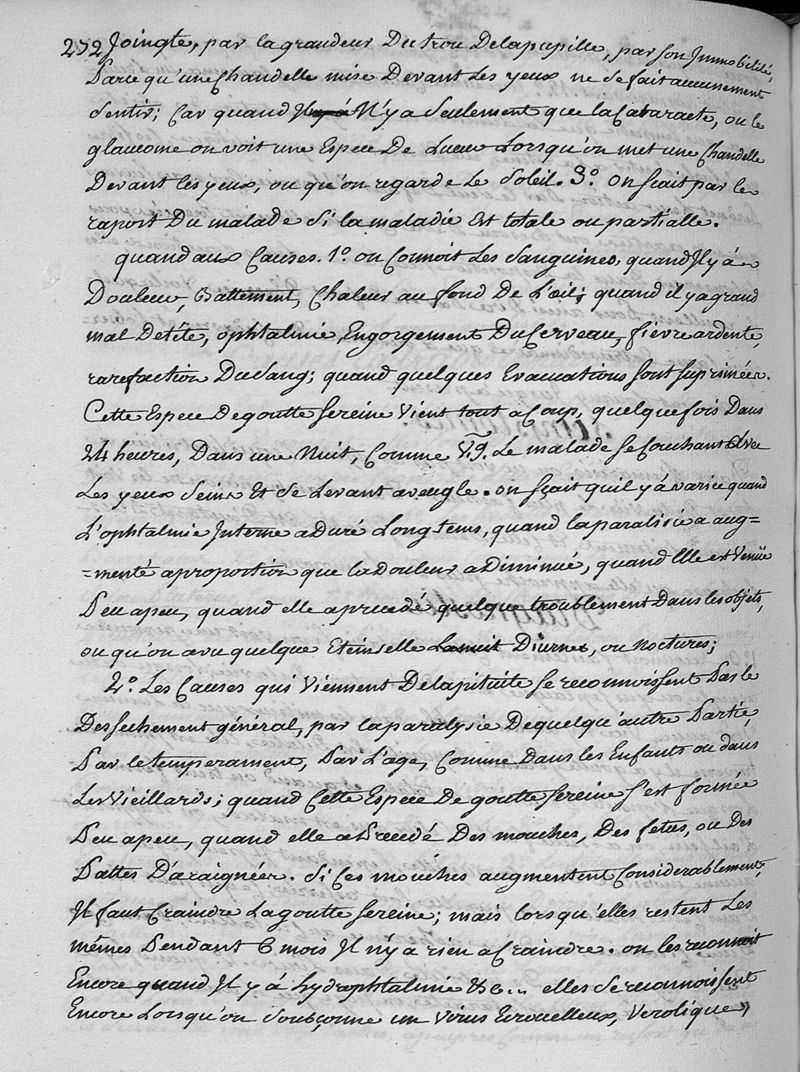 272 Joingte, par la grandeur Du trou Delapupille, par son Immobilité,
Parce qu'une Chandelle mise Devant Les yeux ne se fait aucunement
Sentir; Car quand Il n'y a Seulement que la Cataracte, ou le
glaucome on voit une Espece De Lueur Lorsqu'on met une Chandelle
Devant les yeux, ou qu'on regarde Le Soleil. 3.º on scait par le
raport Du malade Si la maladie Est totale ou partialle.
quand aux Causes. 1.º on Connoit Les Sanguines, quand Il y à
Douleur, Battement, Chaleur au fond De L'œil; quand il ya grand
mal Detéte, ophtalmie, Engorgement Du Cerveau, fievre ardente,
rarefaction Du Sang; quand quelques Evacuations sont suprimées.
Cette Espece De goutte Sereine vient tout a Coup, quelque fois Dans
24 heures, Dans une Nuit, Comme V.g. Le malade se Couchant Avec
Les yeux Seins Et se Levant aveugle. on sçait quil y à varice quand
L'ophtalmie Interne a Duré Longtems, quand la paralisie a aug=
=menté a proportion que la Douleur a Diminué, quand Elle est Venüe
Peu apeu, quand elle a precedé quelque troublement Dans les objets,
ou qu'on a vu quelque Eteinselle Diurnes, ou Noctures;
2.º Les Causes qui Viennent De lapituite se reconnoissent Par le
Dessechement général, par la paralysie De quelqu'autre Partie,
Par le temperament, Par L'age, Comme Dans les Enfants ou dans
Les Vieillards; quand Cette Espece De goutte Sereine s'est formée
Peu apeu, quand elle a Precedé Des mouches, Des fetus, ou Des
Pattes D'araignées. Si Ces mouches augmentent Considerablement,
Il faut Craindre La goutte Sereine; mais lorsqu'elles restent Les
mêmes Pendant 6 mois Il n'y a rien a Craindre. on les reconnoit
Encore quand Il y à hydrophtalmie &c... elles se reconnoissent
Encore Lorsqu'on Soubçonne un Virus Ecrouelleux, Verolique,